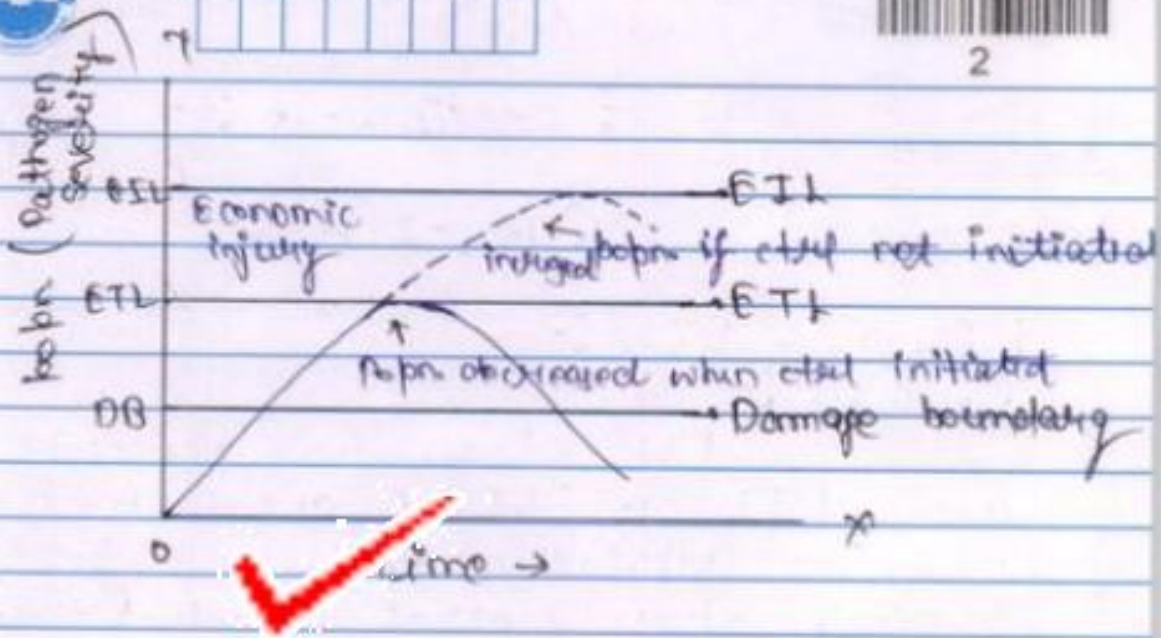 2
y
popn (Pathogen
severity)
EIL
EIL
Economic
injury
increased popn if ctrl not initiated
ETL
ETL
Popn decreased when ctrl initiated
DB
Damage boundary
x
0
Time →